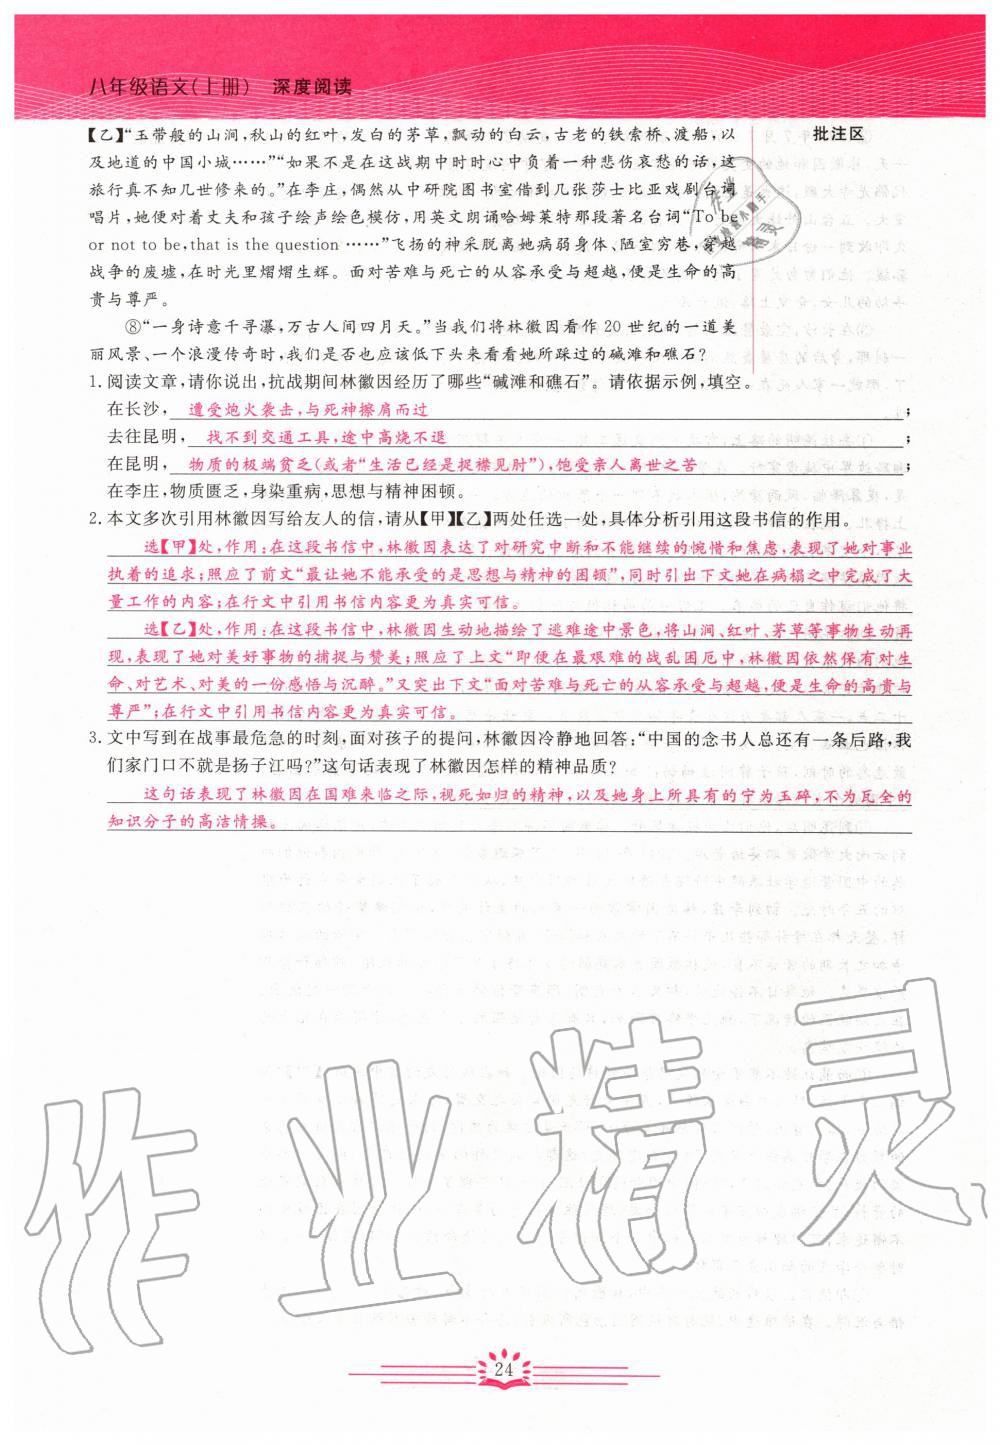 八年级语文(上册) 深度阅读
批注区
【乙】“玉带般的山涧,秋山的红叶,发白的茅草,飘动的白云,古老的铁索桥、渡船,以
及地道的中国小城……”“如果不是在这战期中时时心中负着一种悲伤哀愁的话,这
旅行真不知几世修来的。”在李庄,偶然从中研院图书室借到几张莎士比亚戏剧台词
唱片,她便对着丈夫和孩子绘声绘色模仿,用英文朗诵哈姆莱特那段著名台词“To be
or not to be,that is the question……”飞扬的神采脱离她病弱身体、陋室穷巷,穿越
战争的废墟,在时光里熠熠生辉。面对苦难与死亡的从容承受与超越,便是生命的高
贵与尊严。
⑧“一身诗意千寻瀑,万古人间四月天。”当我们将林徽因看作20世纪的一道美
丽风景、一个浪漫传奇时,我们是否也应该低下头来看看她所踩过的碱滩和礁石?
1. 阅读文章,请你说出,抗战期间林徽因经历了哪些“碱滩和礁石”。请依据示例,填空。
在长沙, 遭受炮火袭击,与死神擦肩而过 ;
去往昆明, 找不到交通工具,途中高烧不退 ;
在昆明, 物质的极端贫乏(或者“生活已经是捉襟见肘”),饱受亲人离世之苦 ;
在李庄,物质匮乏,身染重病,思想与精神困顿。
2. 本文多次引用林徽因写给友人的信,请从【甲】【乙】两处任选一处,具体分析引用这段书信的作用。
选【甲】处,作用:在这段书信中,林徽因表达了对研究中断和不能继续的惋惜和焦虑,表现了她对事业
执着的追求;照应了前文“最让她不能承受的是思想与精神的困顿”,同时引出下文她在病榻之中完成了大
量工作的内容;在行文中引用书信内容更为真实可信。
选【乙】处,作用:在这段书信中,林徽因生动地描绘了逃难途中景色,将山涧、红叶、茅草等事物生动再
现,表现了她对美好事物的捕捉与赞美;照应了上文“即便在最艰难的战乱困厄中,林徽因依然保有对生
命、对艺术、对美的一份感悟与沉醉。”又突出下文“面对苦难与死亡的从容承受与超越,便是生命的高贵与
尊严”;在行文中引用书信内容更为真实可信。
3. 文中写到在战事最危急的时刻,面对孩子的提问,林徽因冷静地回答:“中国的念书人总还有一条后路,我
们家门口不就是扬子江吗?”这句话表现了林徽因怎样的精神品质?
这句话表现了林徽因在国难来临之际,视死如归的精神,以及她身上所具有的宁为玉碎,不为瓦全的
知识分子的高洁情操。
作业精灵
24